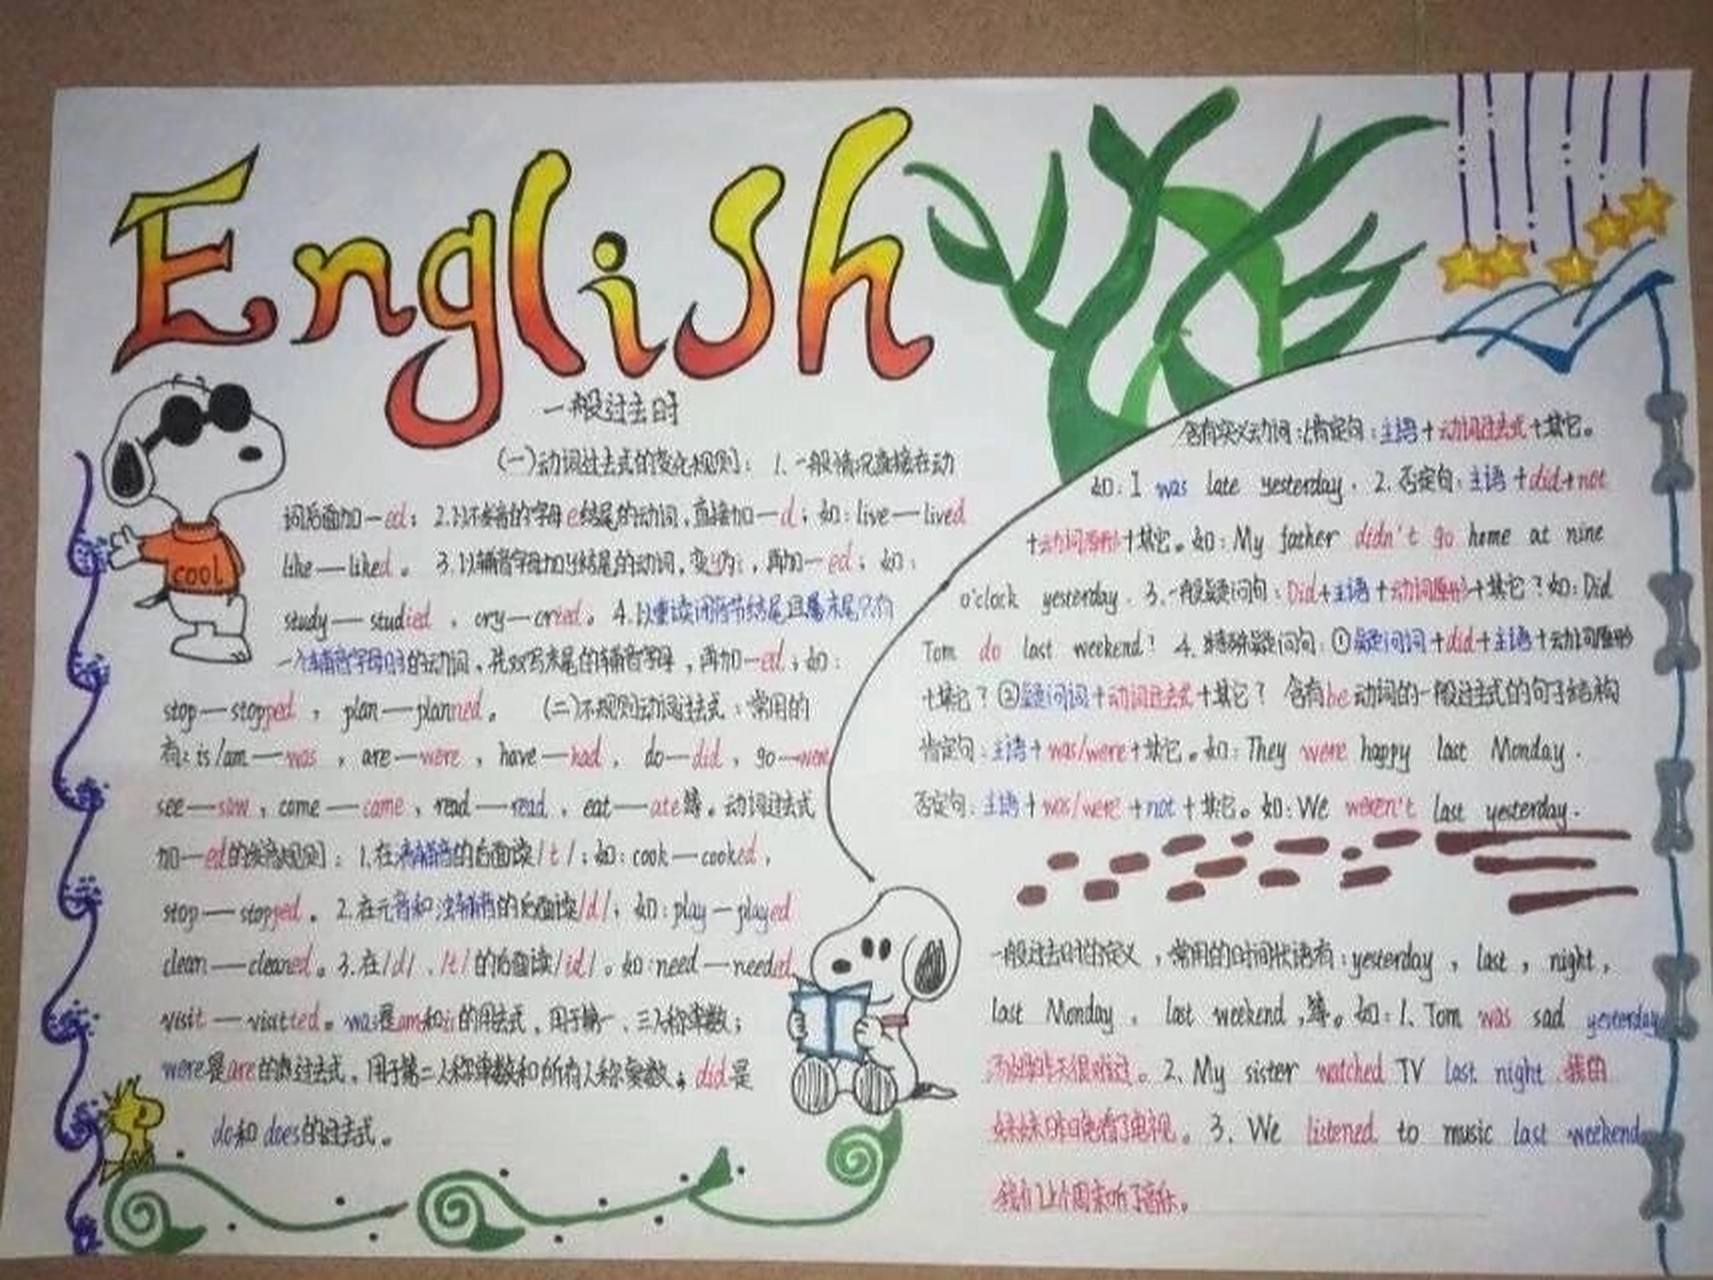 English
COOL
一般过去时
(一)动词过去式的变化规则: 1.一般情况直接在动
词后面加—ed; 2.以不发音的字母e结尾的动词,直接加—d; 如: live—lived
like—liked。 3.以辅音字母加y结尾的动词,变y为i,再加—ed; 如:
study—studied , cry—cried。 4.以重读闭音节结尾且末尾只有
一个辅音字母的动词,先双写末尾的辅音字母,再加—ed;如:
stop—stopped , plan—planned。 (二)不规则动词过去式:常用的
有: is/am—was , are—were , have—had , do—did , go—went
see—saw , come—came , read—read , eat—ate等。动词过去式
加—ed的发音规则: 1.在清辅音的后面读/t/;如: cook—cooked ,
stop—stopped 。 2.在元音和浊辅音的后面读/d/; 如:play—played
clean—cleaned。3.在/d/、/t/的后面读/id/。如:need—needed
visit—visitted。was是am和is的过去式,用于第一、三人称单数;
were是are的过去式,用于第二人称单数和所有人称复数;did是
do和does的过去式。
含有实义动词:1.肯定句:主语+动词过去式+其它。
如: I was late yesterday. 2.否定句:主语+did+not
+动词原形+其它。如: My father didn't go home at nine
o'clock yesterday. 3.一般疑问句:Did+主语+动词原形+其它?如:Did
Tom do last weekend? 4.特殊疑问句:①疑问词+did+主语+动词原形
+其它?②疑问词+动词过去式+其它? 含有be动词的一般过去式的句子结构
肯定句:主语+was/were+其它。如: They were happy last Monday.
否定句:主语+was/were+not+其它。如:We weren't last yesterday.
一般过去时的定义,常用的时间状语有:yesterday , last , night ,
last Monday , last weekend ,等。如:1、Tom was sad yesterday
昨天很难过。2、My sister watched TV last night 我的
妹妹昨晚看了电视。3、We listened to music last weekend
我们上个周末听了音乐。